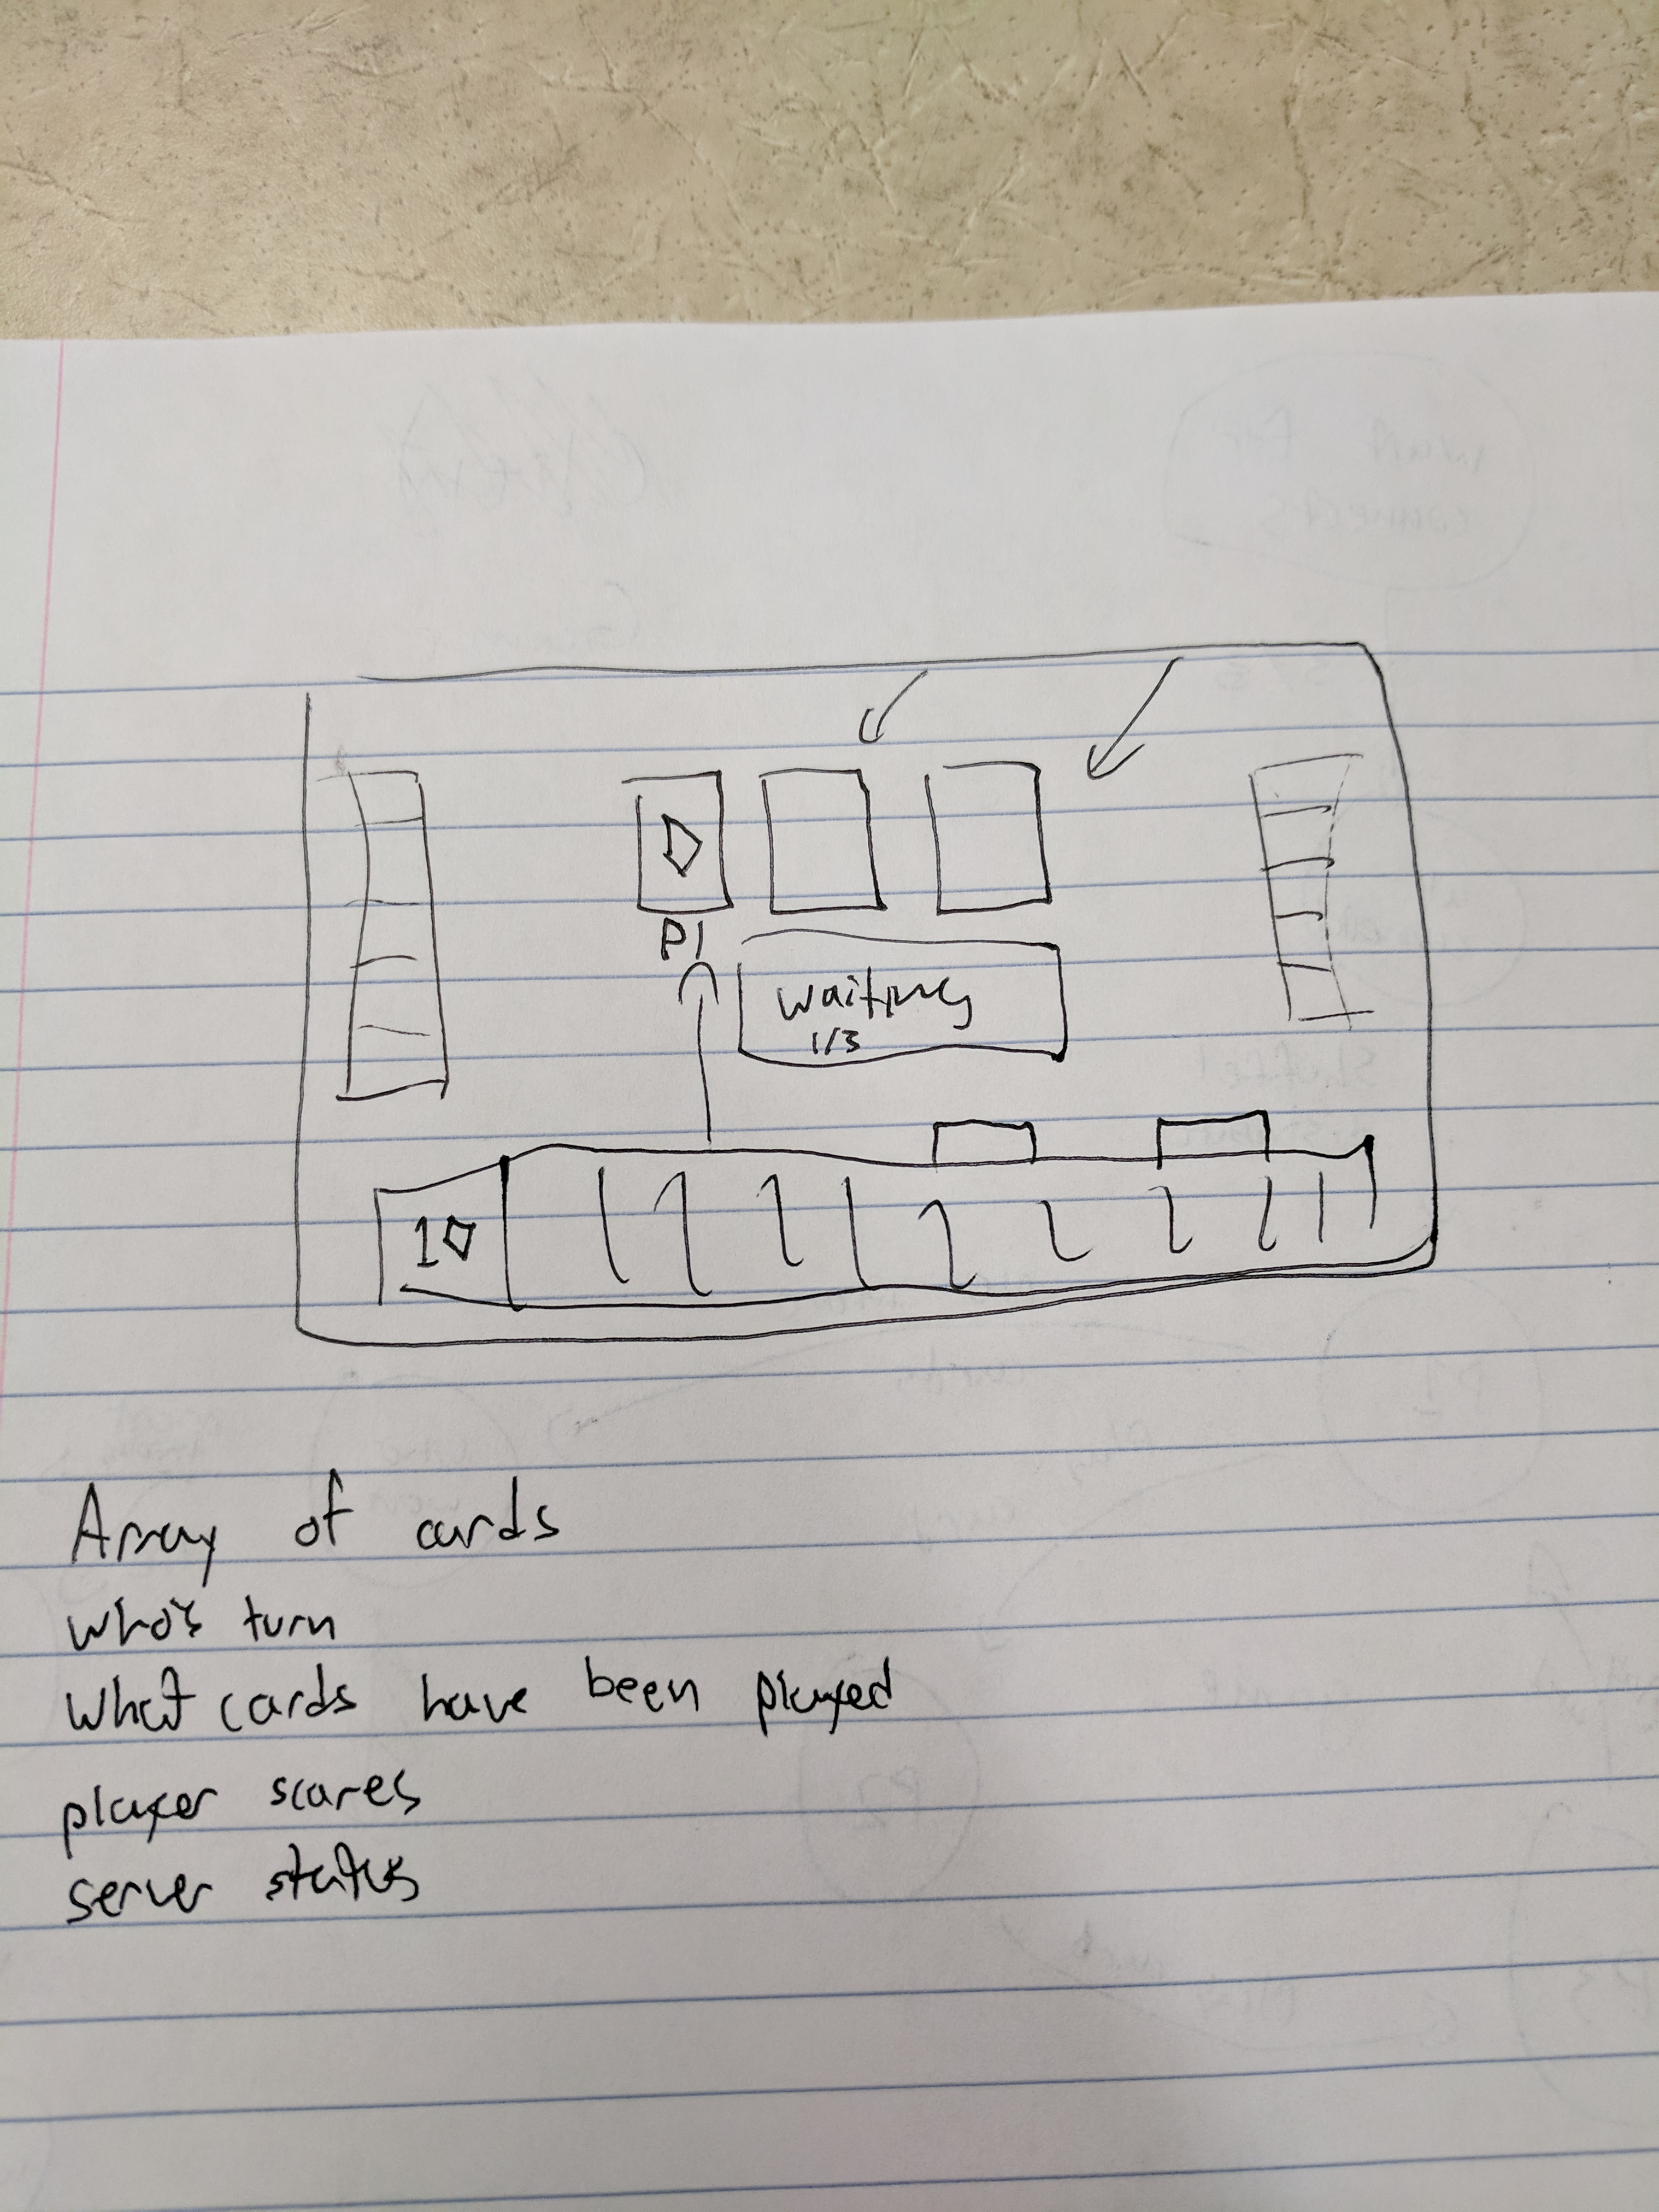 P1
waiting
1/3
10
Array of cards
who's turn
What cards have been played
player scores
server status